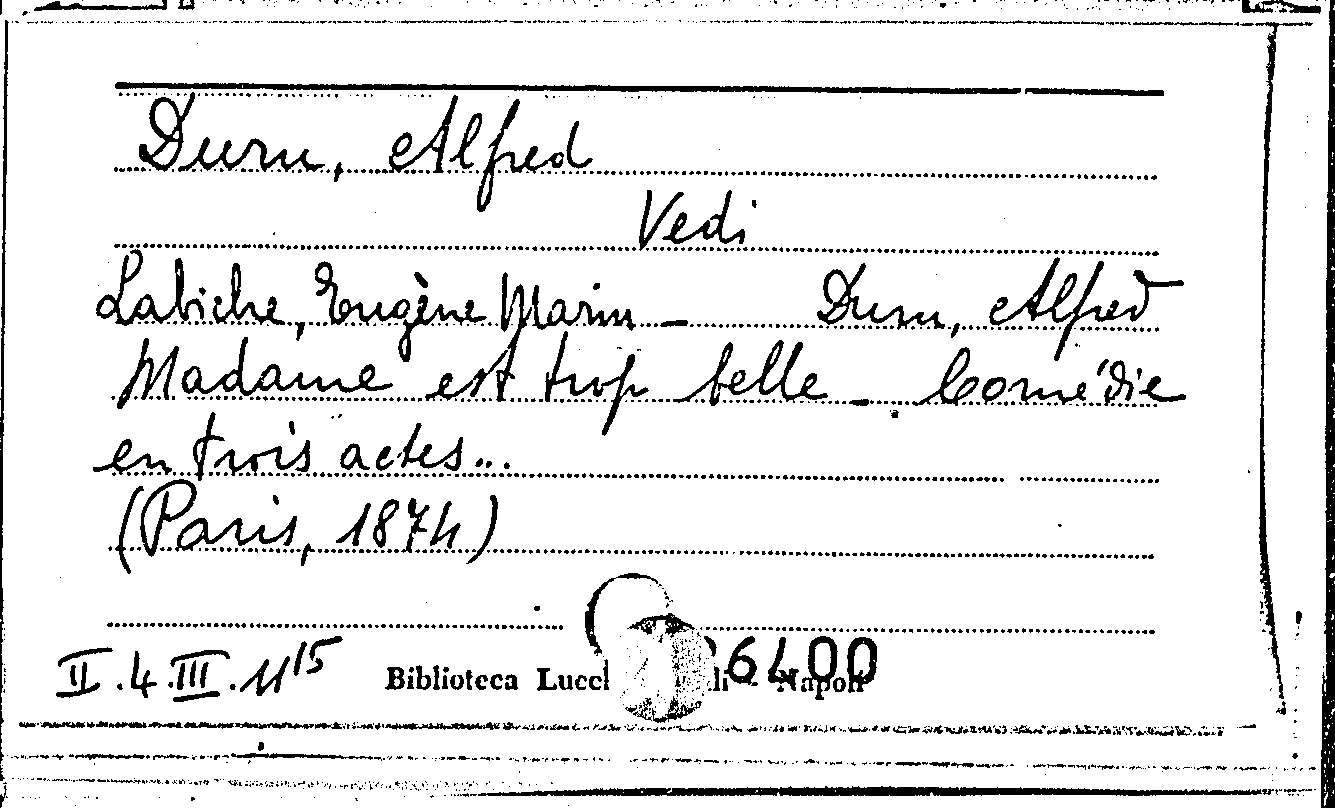 Duru, Alfred
Vedi
Labiche, Eugène Marin - Duru, Alfred
Madame est trop belle - Comédie
en trois actes...
(Paris, 1874)
II.4.III.11 15
Biblioteca Napoli
6400